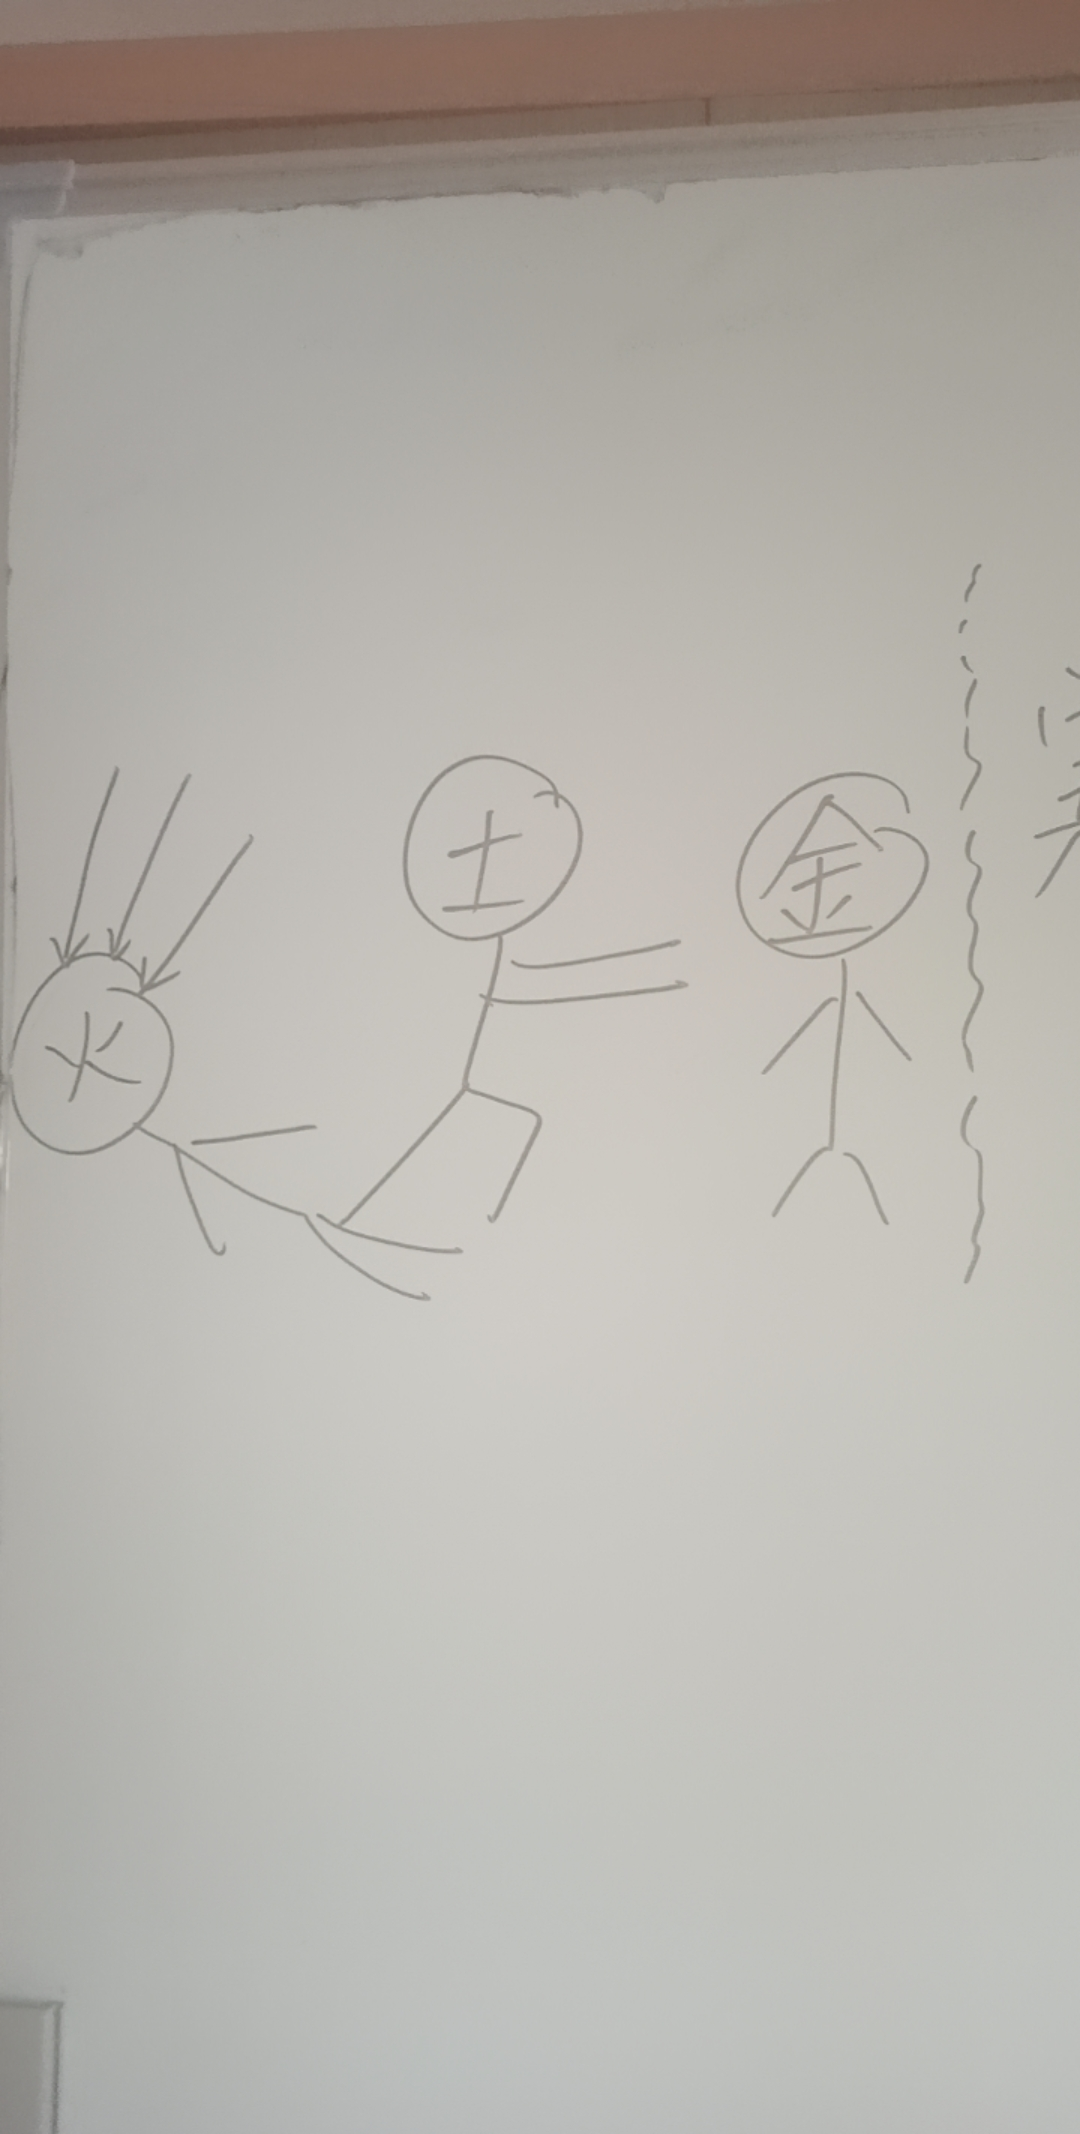 火 土 金